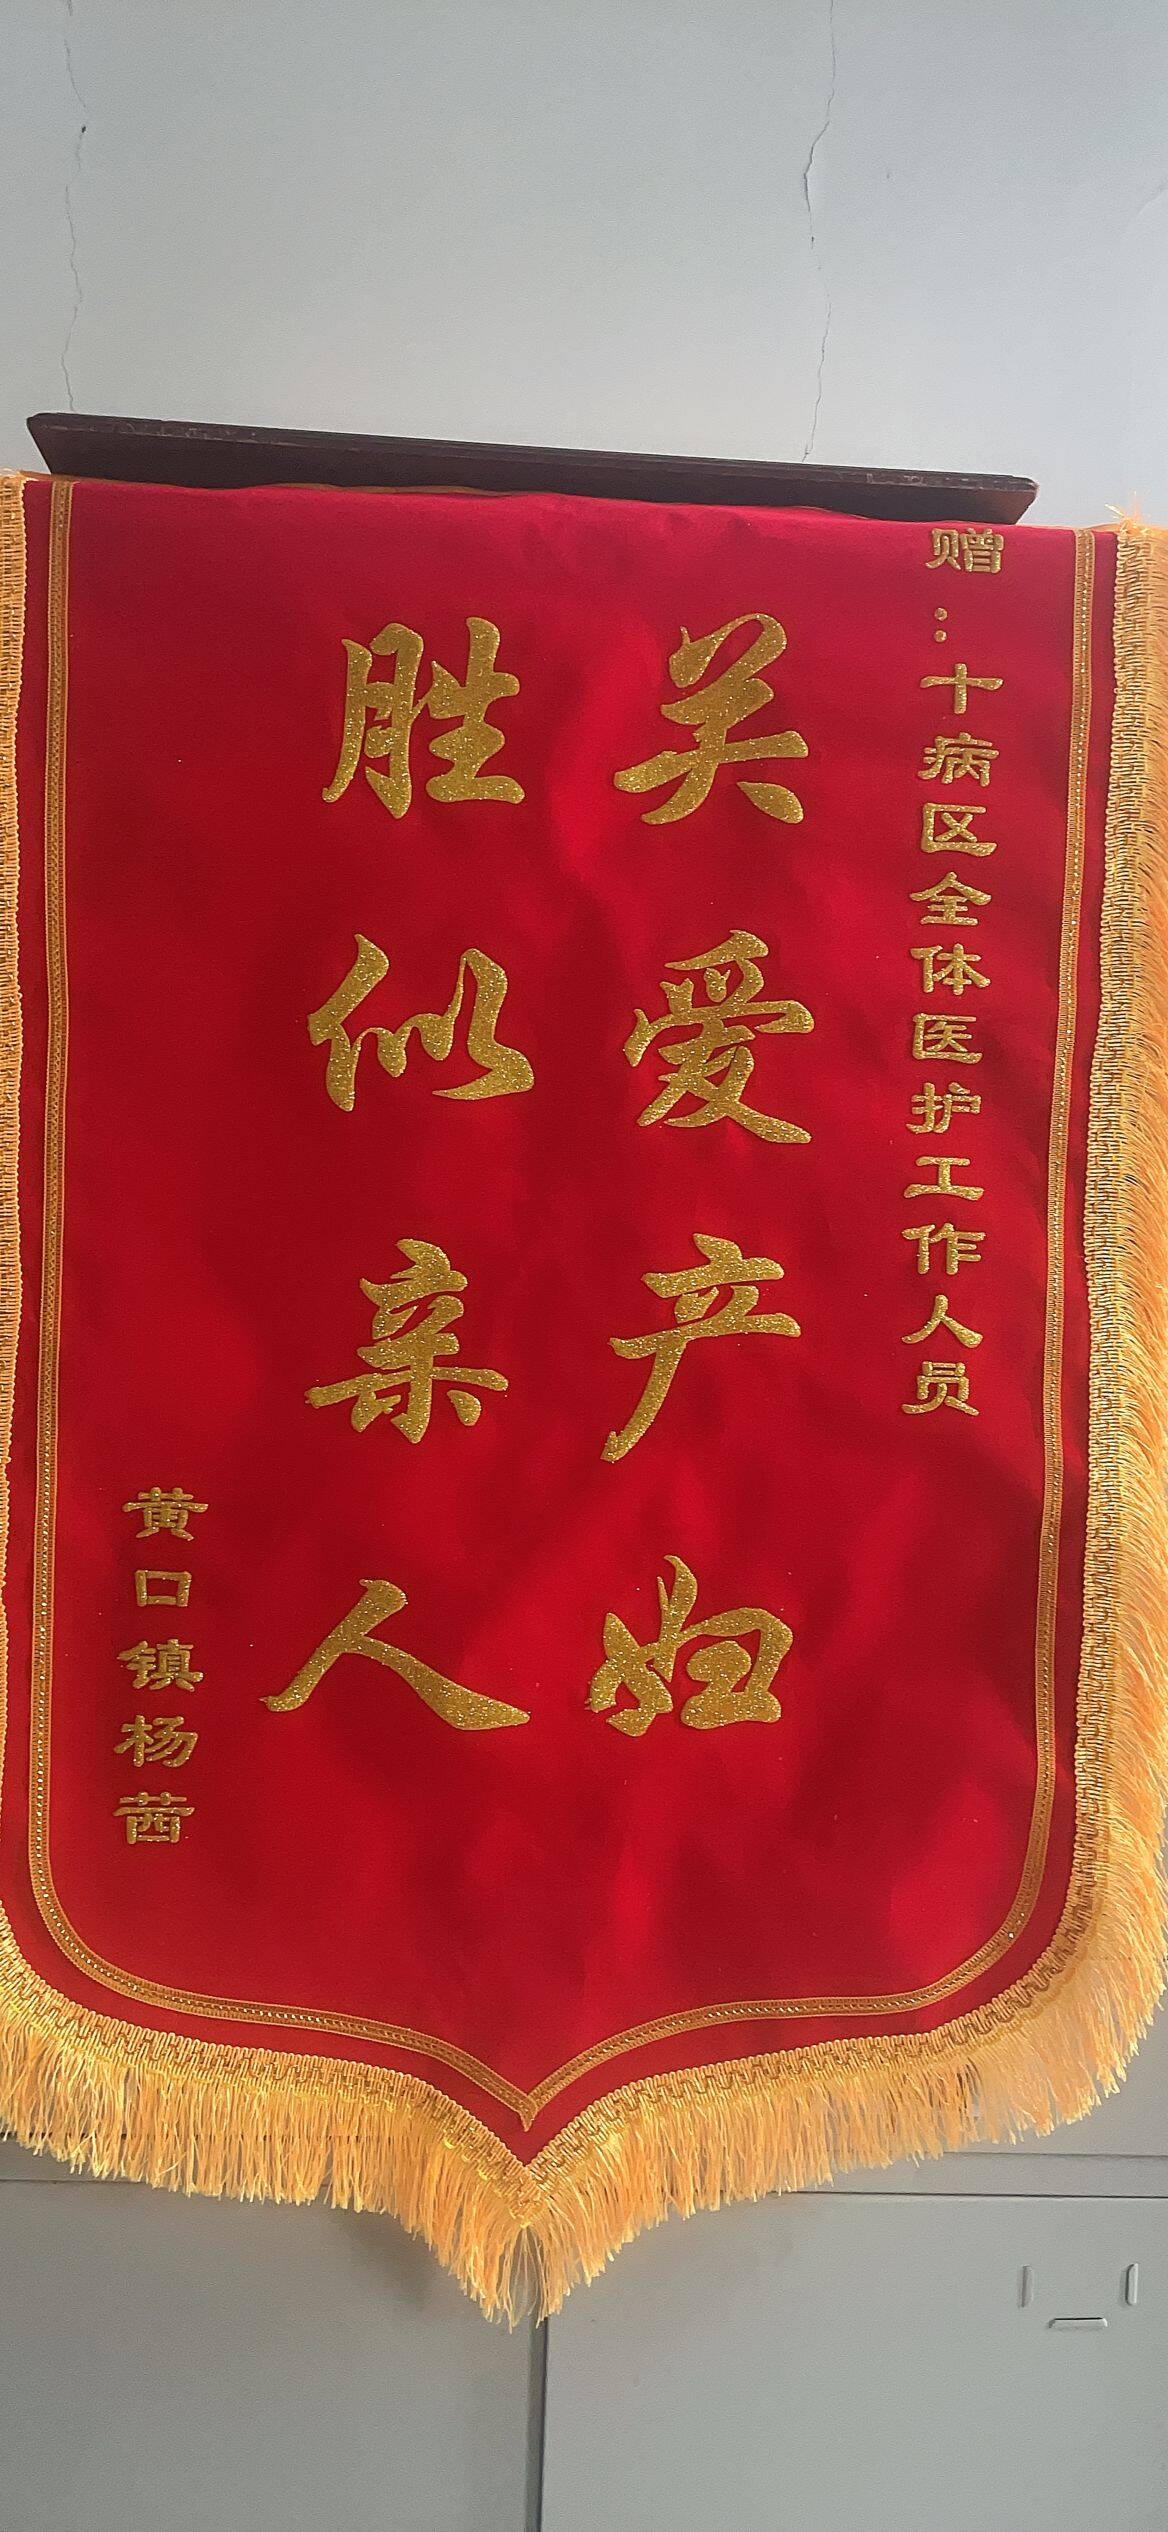 赠：十病区全体医护工作人员
关爱产妇
胜似亲人
黄口镇杨茜